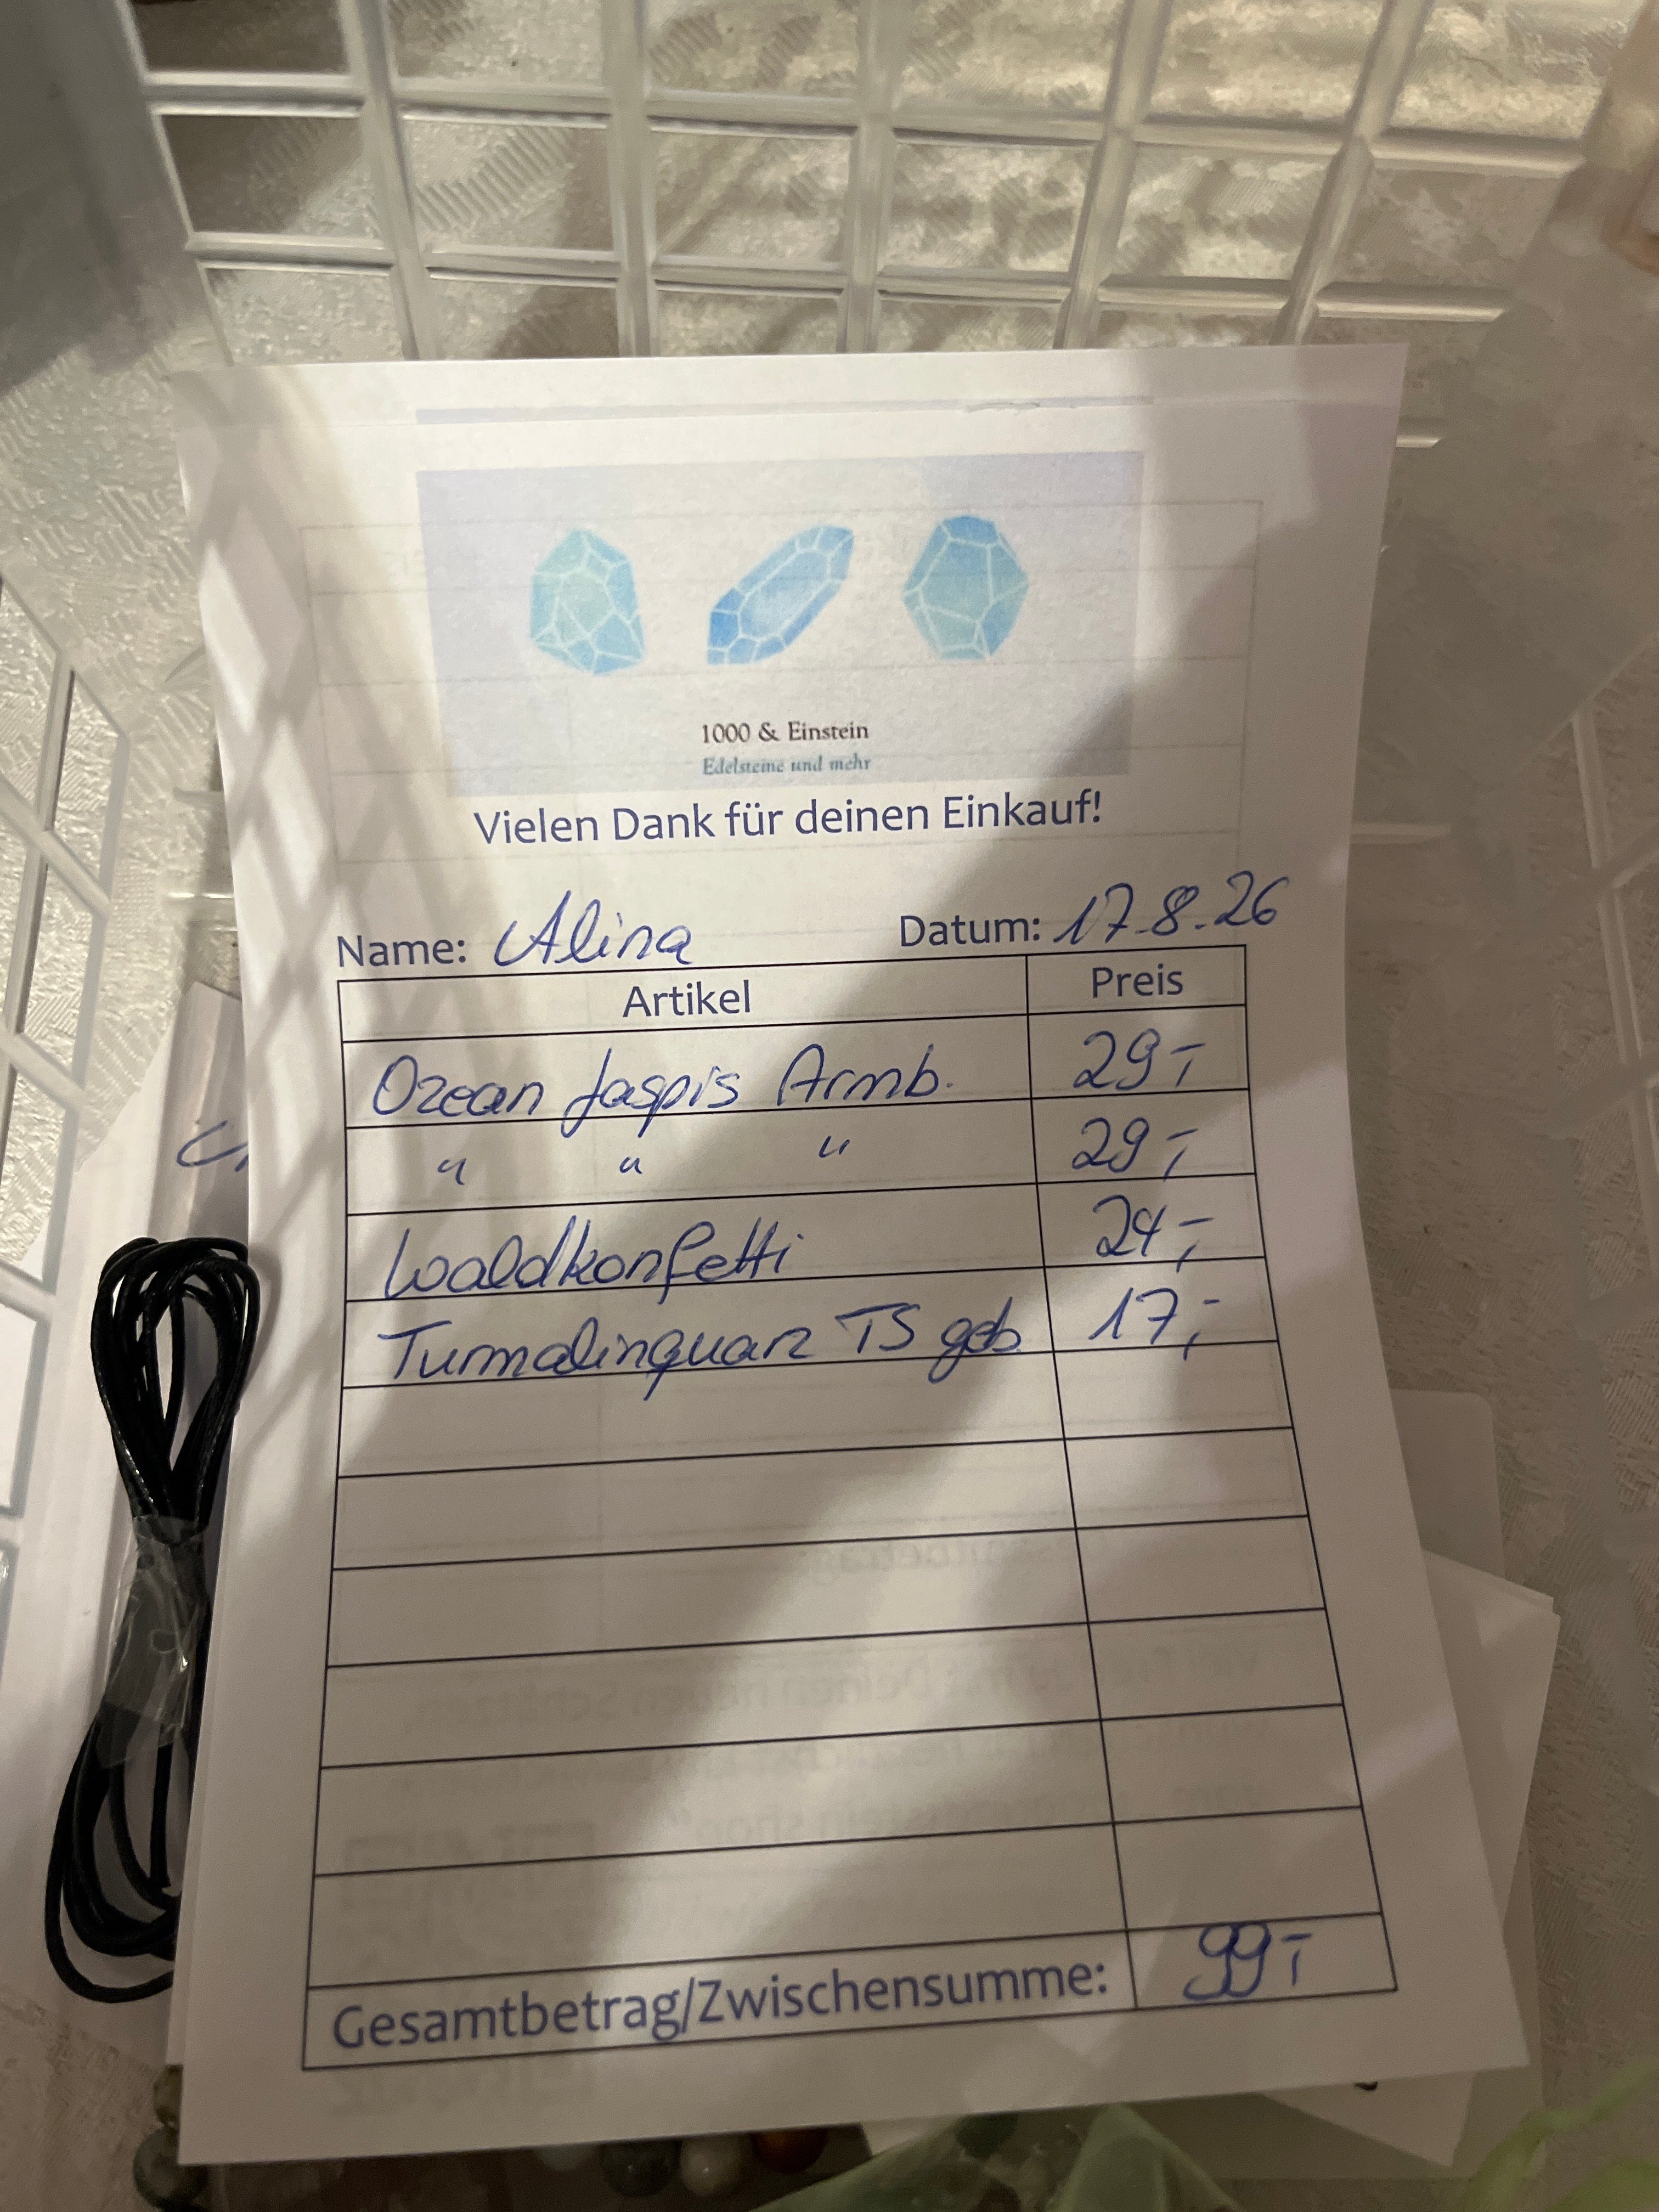 1000 & Einstein
Edelsteine und mehr
Vielen Dank für deinen Einkauf!
Name: Alina Datum: 17.8.26
Artikel Preis
Ozean Jaspis Armb. 29,-
" " " 29,-
Waldkonfetti 24,-
Turmalinquarz TS geb. 17,-
Gesamtbetrag/Zwischensumme: 99,-